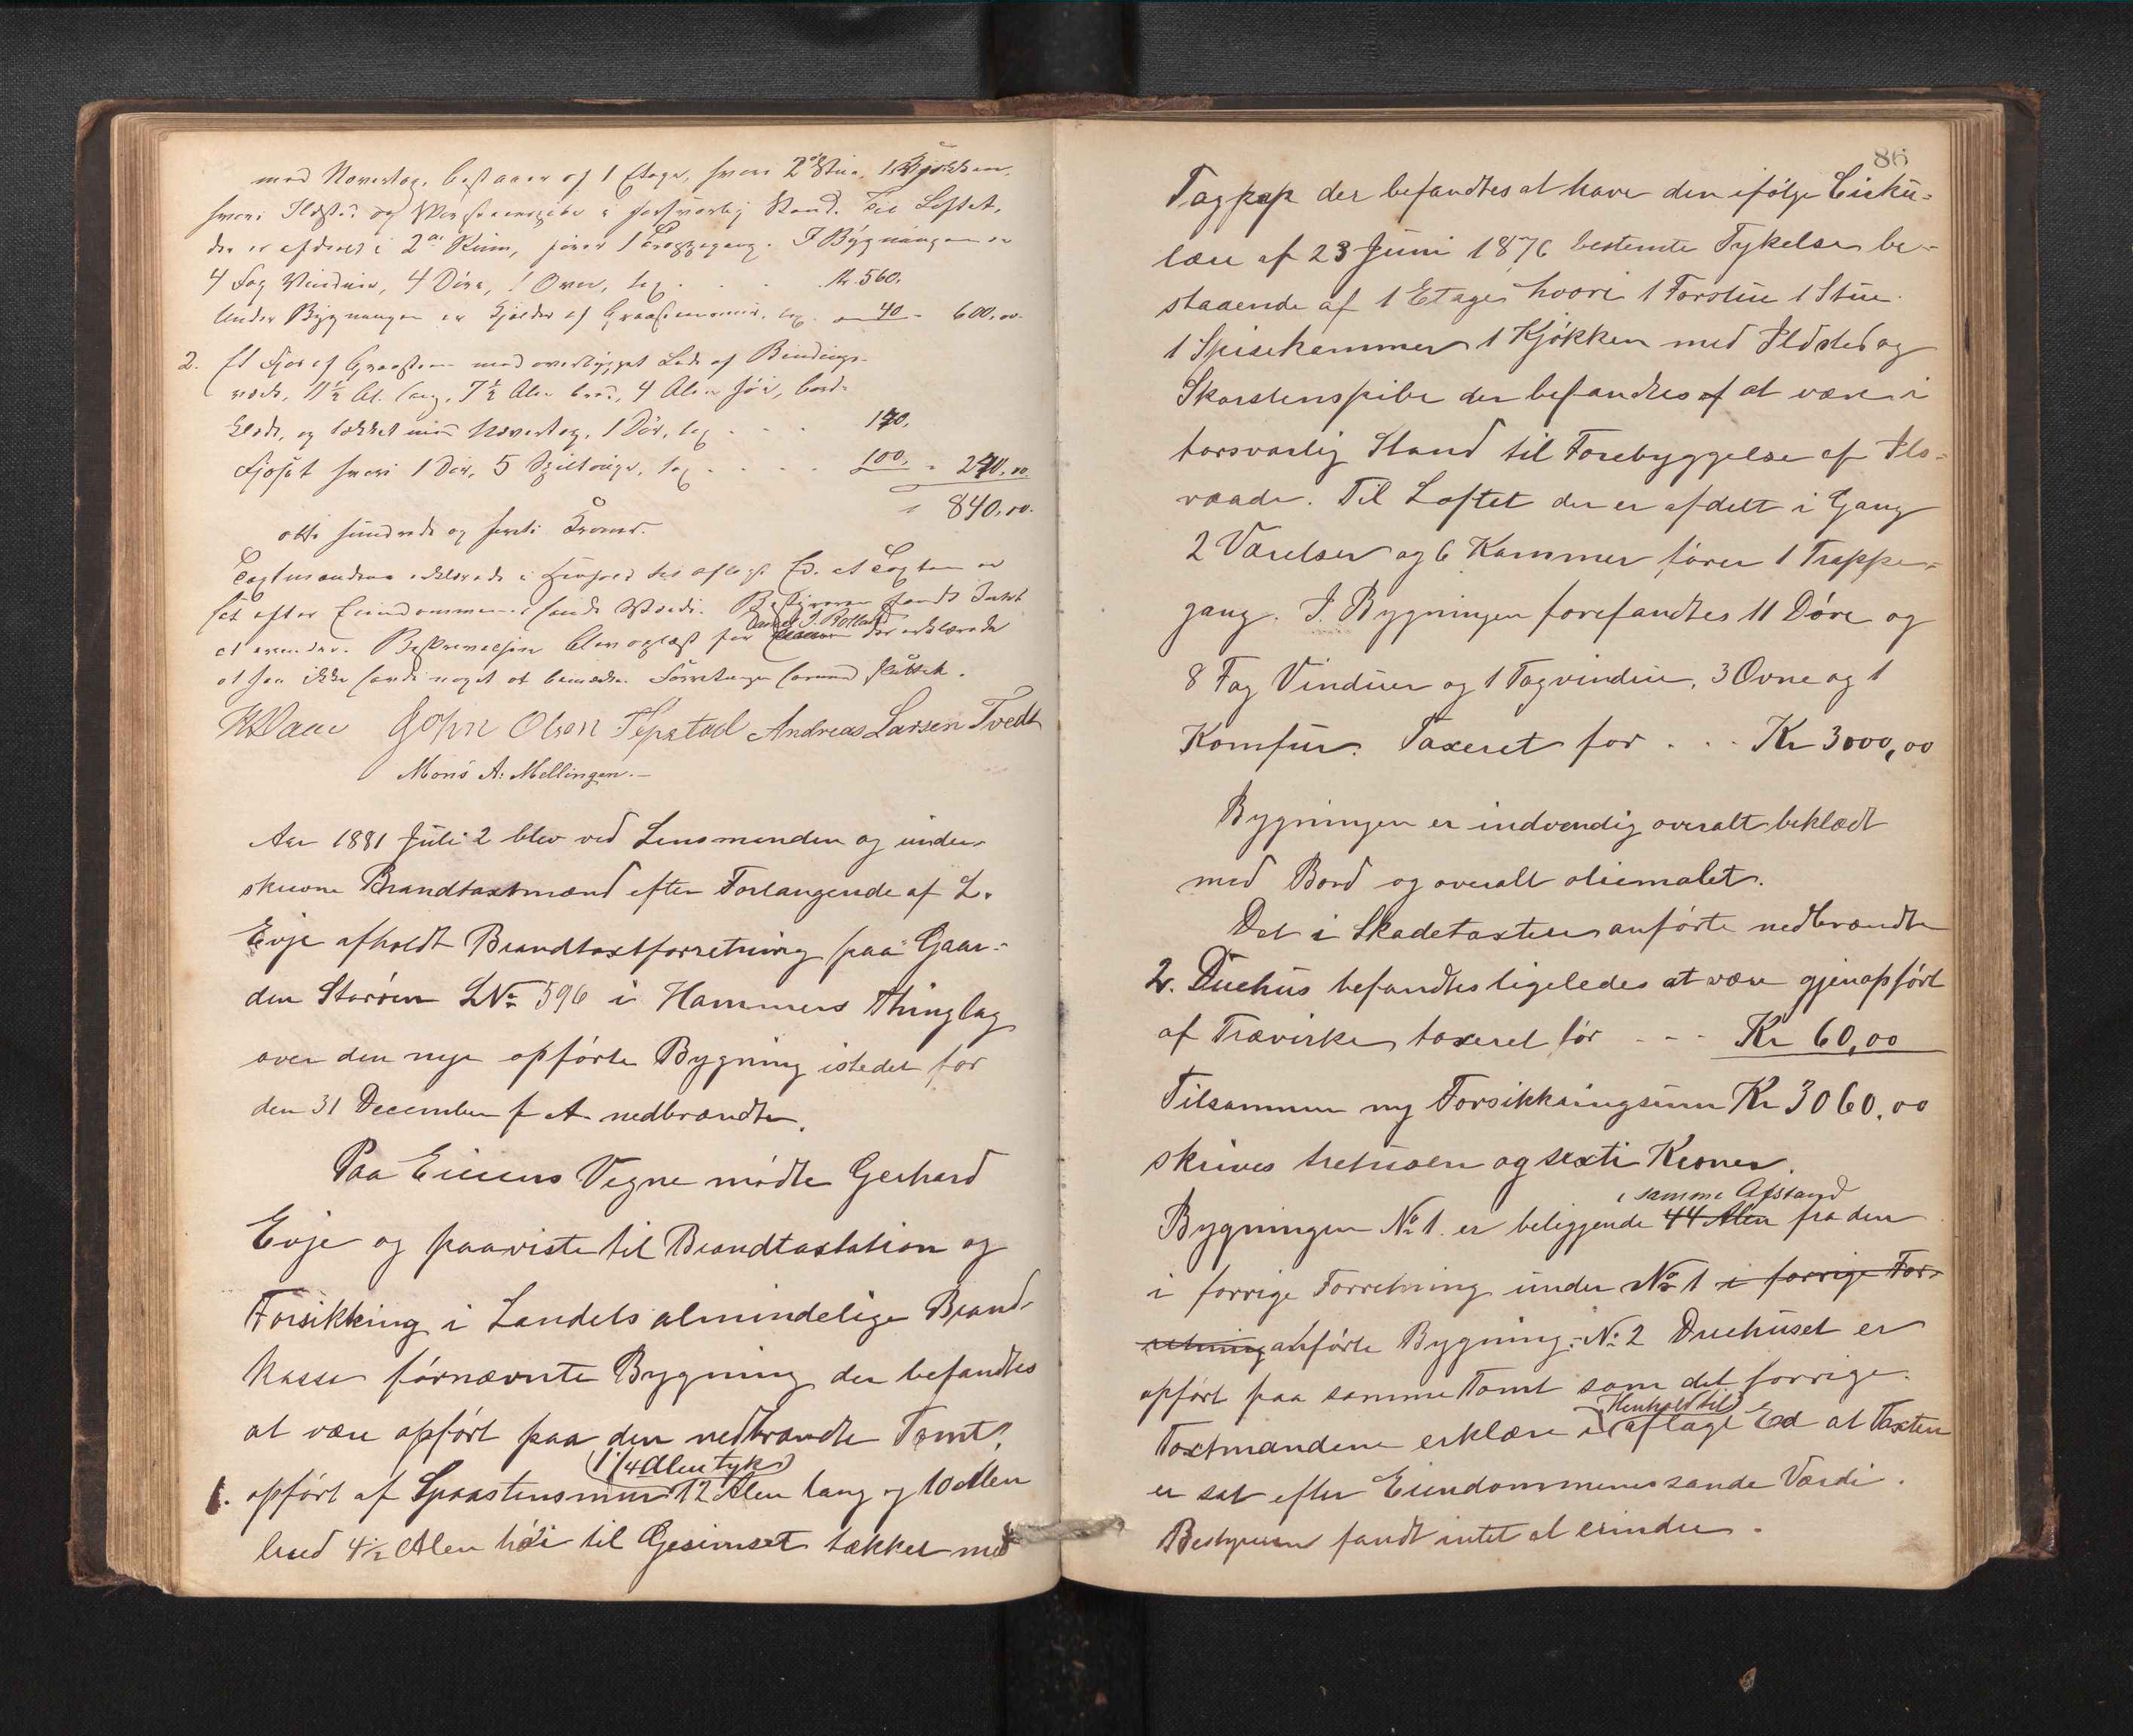 med Nævertag, bestaaer af 1 Etage, hvori 2 Stue, 1 Kjøkken,
hvori Ildsted og Skorstenspibe i forsvarlig Stand. Til Loftet,
der er afdelt i 2de Rum, fører 1 Trappegang. I Bygningen er
4 Fag Vinduer, 4 Døre, 1 Ovn, tax. . . . Kr. 560.
Under Bygningen er Kjelder af Graastensmuur, tax. " 40 - 600,00.
2. Et Fjøs af Graasten med overbygget Lade af Bindings-
værk, 11½ Al. lang, 7½ Alen bred, 4 Alen høi, bord-
klædt, og tækket med Nævertag, 1 Dør, tax . . . 140.
Fjøset hvori 1 Dør, 5 tax . . . . 100. - 240,00.
840,00.
otte hundrede og firti Kroner.
Taxtmændene erklærede i Henhold til aflagt Ed, at Taxten er
sat efter Eiendommenes sande Værdi. Bestyreren fandt Intet
Daniel J. Rolland
at erindre. Beskrivelsen blev oplæst for der erklærede
at han ikke havde noget at bemærke. Forretningen saaledes sluttet.
John Olsen Tepstad Andreas Larsen Tvedt
Mons A. Mellingen.
Aar 1881 Juli 2 blev ved Lensmanden og under-
skrevne Brandtaxtmænd efter Forlangende af L.
Evje afholdt Brandtaxtforretning paa Gaar-
den Storøen LNo 596 i Hammers Thinglag
over den nye opførte Bygning istedet for
den 31 December f. A. nedbrændte.
Paa Eierens Vegne mødte Gerhard
Evje og paaviste til Brandtaxtation og
Forsikkring i Landets almindelige Brand-
kasse førnævnte Bygning der befandtes
at være opført paa den nedbrændte Tomt,
1¼ Alen tyk
1. opført af Graastensmur 12 Alen lang og 10 Alen
bred 4½ Alen høi til Gesimset tækket med
86
Tagpap der befandtes at have den ifølge Cirku-
lære af 23 Juni 1876 bestemte Tykkelse be-
staaende af 1 Etage hvori 1 Forstue 1 Stue
1 Spisekammer 1 Kjøkken med Ildsted og
Skorstenspibe der befandtes af at være i
forsvarlig Stand til Forebyggelse af Ilds-
vaade. Til Loftet der er afdelt i Gang
2 Værelser og 6 Kammer fører 1 Trappe-
gang. I Bygningen forefandtes 11 Døre og
8 Fag Vinduer og 1 Tagvindue, 3 Ovne og 1
Komfur. Taxeret for . . . Kr 3000,00
Bygningen er indvendig overalt beklædt
med Bord og overalt oliemalet.
Det i Skadetaxten anførte nedbrændte
2. Duehus befandtes ligeledes at være gjenopført
af Trævirke, taxeret før - - - Kr 60,00
Tilsammen ny Forsikkringsum Kr 3060,00
skrives tretusen og sexti Kroner.
i samme Afstand
Bygningen No 1. er beliggende 44 Alen fra den
i forrige Forretning under No 1 i forrige For-
retning anførte Bygning. No 2 Duehuset er
opført paa samme Tomt som det forrige.
Henhold til
Taxtmændene erklære i aflagt Ed at Taxten
er sat efter Eiendommenes sande Værdi.
Bestyreren fandt intet at erindre.